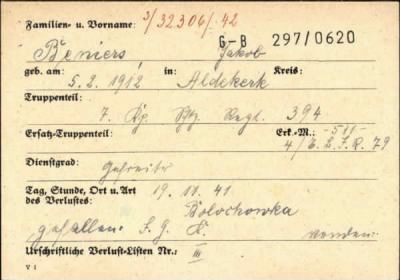 Familien- u. Vorname: 3/32306/42
G-B 297/0620
Beniers Jakob
geb. am: in: Kreis:
5. 2. 1912 Aldekerk
Truppenteil:
7. Kp. Regt. 394
Ersatz-Truppenteil: Erk.-M.: -511-
4/ 79
Dienstgrad: Gefreiter
Tag, Stunde, Ort u. Art 19. 10. 41
des Verlustes: Bolochowka
gefallen.
Urschriftliche Verlust-Listen Nr.: III
V 1